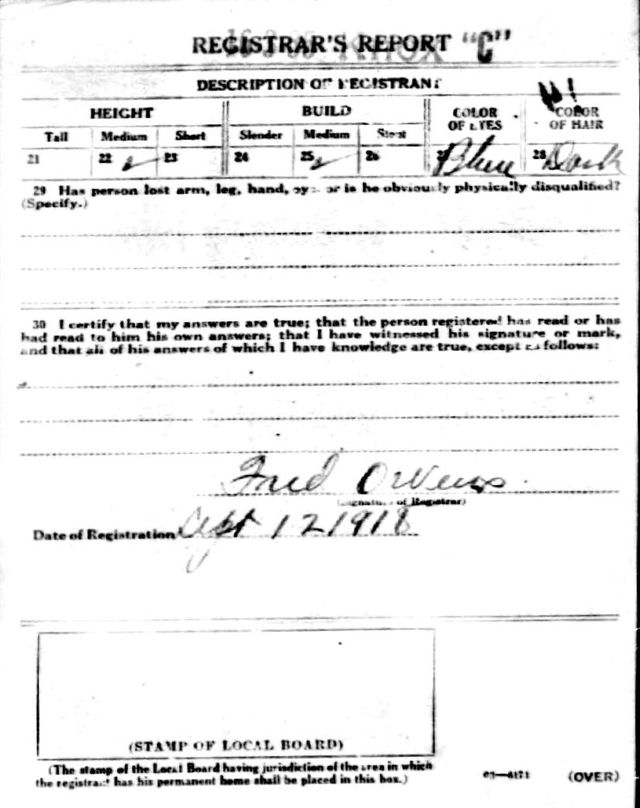 REGISTRAR'S REPORT "C"
DESCRIPTION OF REGISTRANT
HEIGHT BUILD COLOR OF EYES COLOR OF HAIR
Tall Medium Short Slender Medium Stout
21 22 ✓ 23 24 25 ✓ 26 27 Blue 28 Dark
29 Has person lost arm, leg, hand, eye, or is he obviously physically disqualified?
(Specify.)
30 I certify that my answers are true; that the person registered has read or has
had read to him his own answers; that I have witnessed his signature or mark,
and that all of his answers of which I have knowledge are true, except as follows:
Fred Owens
(Signature of Registrar)
Date of Registration Sept 12 1918
(STAMP OF LOCAL BOARD)
(The stamp of the Local Board having jurisdiction of the area in which
the registrant has his permanent home shall be placed in this box.)
03—6171 (OVER)